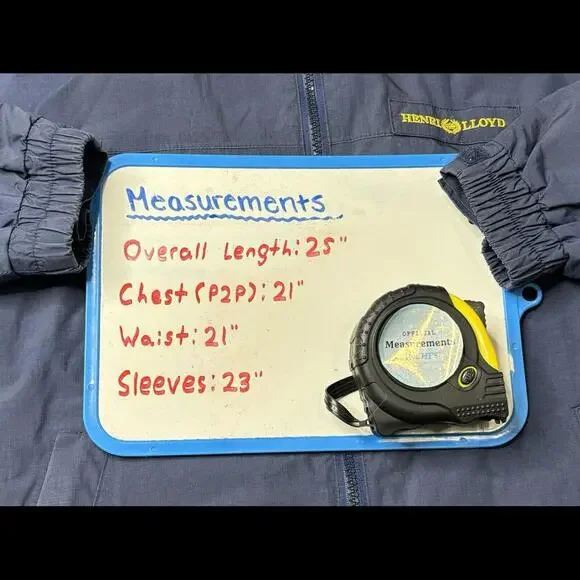 HENRI LLOYD
Measurements
Overall Length: 25"
Chest (P2P): 21"
Waist: 21"
Sleeves: 23"
OFFICIAL
Measurements